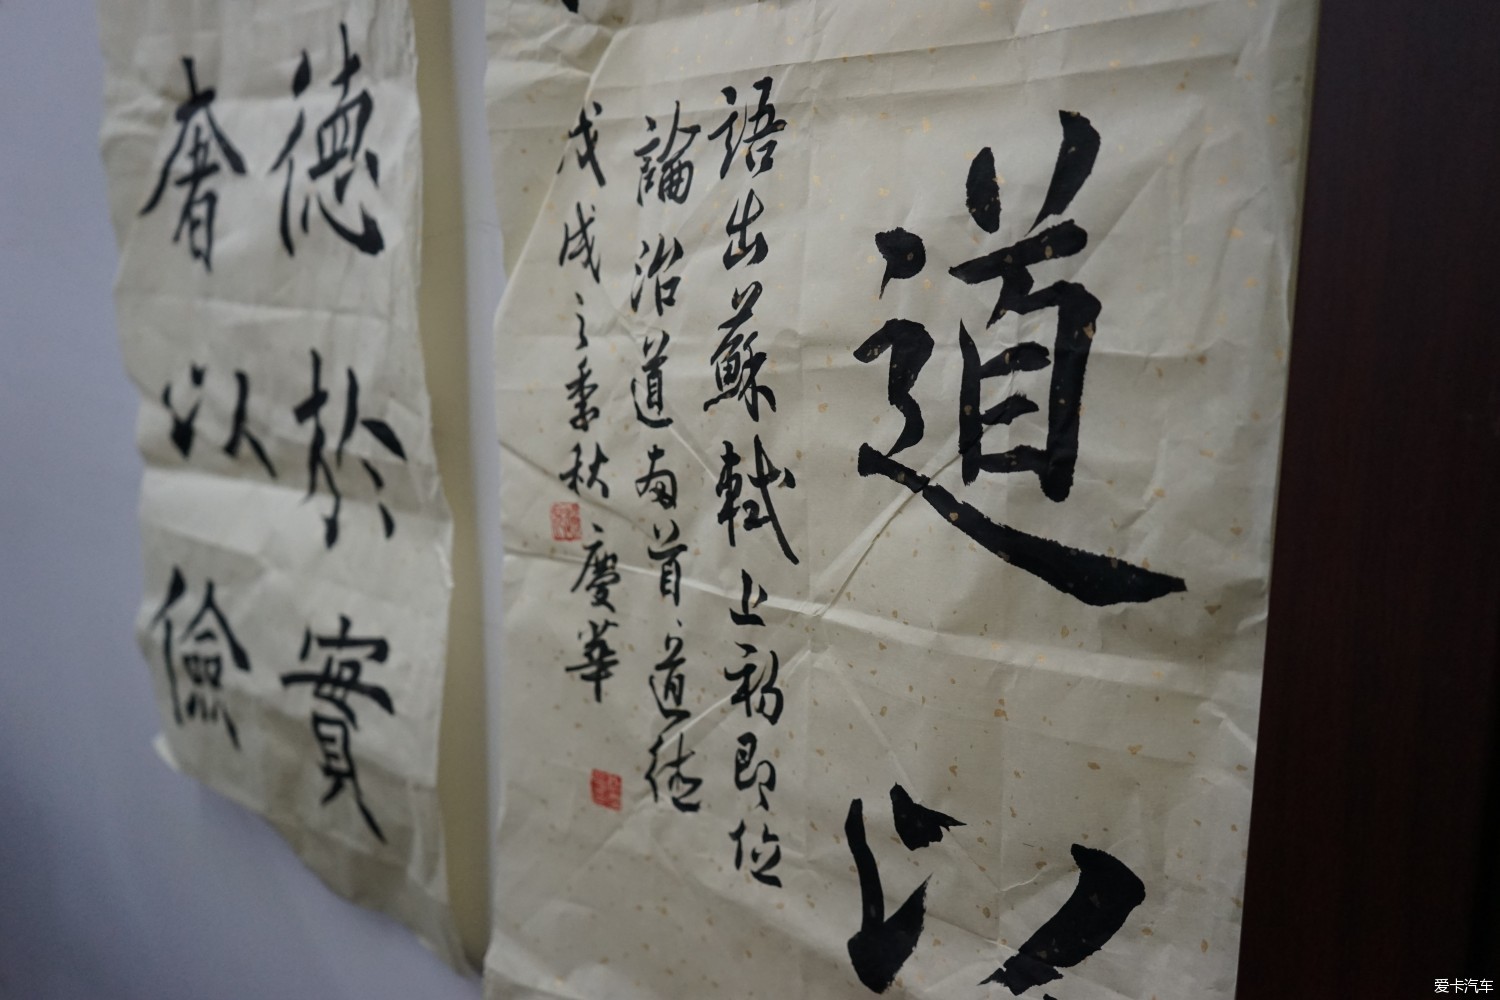 道以
語出蘇軾上初即位
論治道两首道德
戊戌之季秋慶華
德於實
奢以儉
爱卡汽车